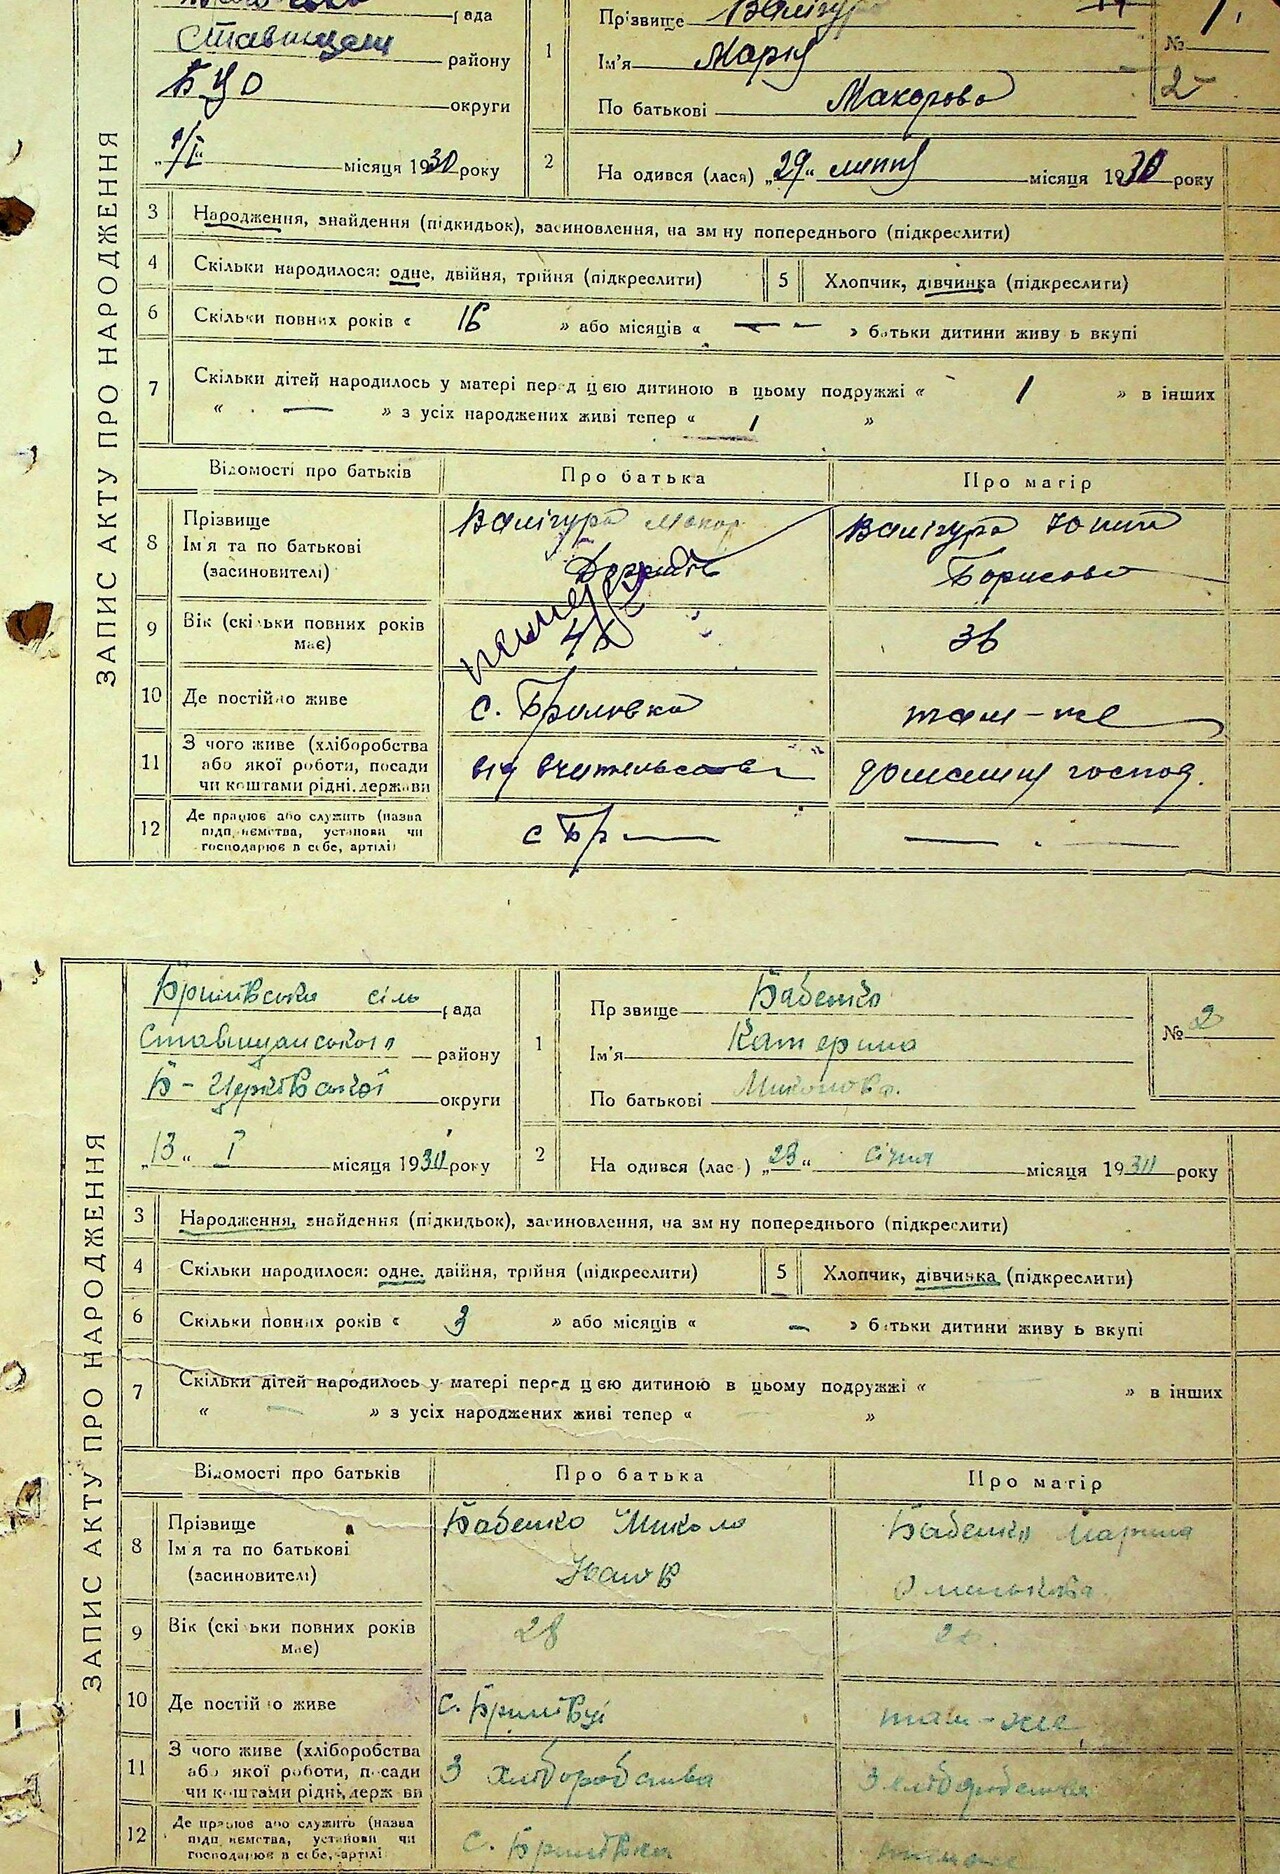 рада
Ставищан району
БЦО округи
місяця 1930 року
ЗАПИС АКТУ ПРО НАРОДЖЕННЯ
1 Прізвище Валігура
Ім'я Марія
По батькові Макарова
№ 1.
2
2 На одився (лася) „29“ місяця 1930 року
3 Народження, знайдення (підкидьок), засиновлення, на зм ну попереднього (підкреслити)
4 Скільки народилося: одне, двійня, трійня (підкреслити) 5 Хлопчик, дівчинка (підкреслити)
6 Скільки повних років « 16 » або місяців « — » батьки дитини живу ь вкупі
7 Скільки дітей народилось у матері перед цією дитиною в цьому подружжі « 1 » в інших
« — » з усіх народжених живі тепер « 1 »
Відомості про батьків Про батька Про матір
8 Прізвище Валігура Макар Валігура
Ім'я та по батькові Борисова
(засиновителі)
9 Вік (скі ьки повних років має) 36
10 Де постійно живе с. Бримовка там-же
11 З чого живе (хліборобства від вчительства домашня господ.
або якої роботи, посади
чи коштами рідні, держави
12 Де працює або служить (назва с Бр —
підп иємства, установи чи
господарює в себе, артілі)
Бримівська сіль рада
Ставищанського району
Б-Церківської округи
„13“ I місяця 1930 року
ЗАПИС АКТУ ПРО НАРОДЖЕННЯ
1 Пр звище Бабенко
Ім'я Катерина
По батькові Миколова.
№ 2
2 На одився (лас ) „23“ січня місяця 1930 року
3 Народження, знайдення (підкидьок), засиновлення, на зм ну попереднього (підкреслити)
4 Скільки народилося: одне, двійня, трійня (підкреслити) 5 Хлопчик, дівчинка (підкреслити)
6 Скільки повних років « 3 » або місяців « — » батьки дитини живу ь вкупі
7 Скільки дітей народилось у матері перед цією дитиною в цьому подружжі « — » в інших
« — » з усіх народжених живі тепер « — »
Відомості про батьків Про батька Про матір
8 Прізвище Бабенко Микола Бабенко Марина
Ім'я та по батькові Іванов
(засиновителі)
9 Вік (скі ьки повних років має) 28
10 Де постій о живе с. Бримівці там-же
11 З чого живе (хліборобства З хліборобства З хліборобства
або якої роботи, посади
чи коштами рідні, держ ви
12 Де працює або служить (назва с. Бримівка
підп иємства, установи чи
господарює в себе, артілі